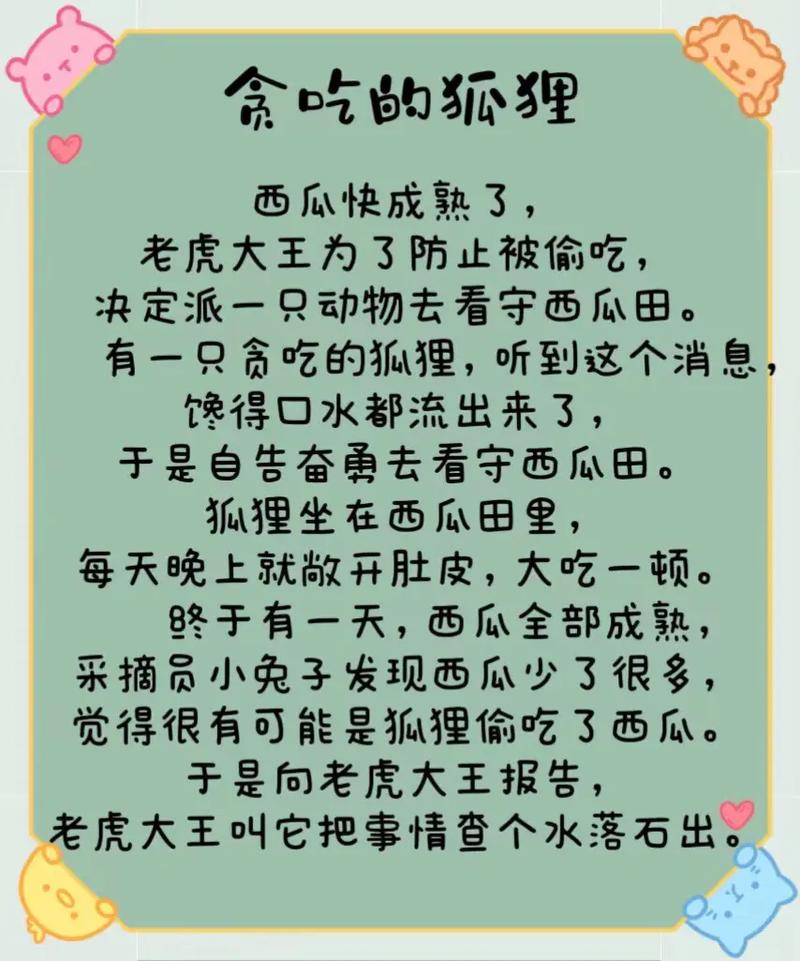 贪吃的狐狸
西瓜快成熟了，
老虎大王为了防止被偷吃，
决定派一只动物去看守西瓜田。
有一只贪吃的狐狸，听到这个消息，
馋得口水都流出来了，
于是自告奋勇去看守西瓜田。
狐狸坐在西瓜田里，
每天晚上就敞开肚皮，大吃一顿。
终于有一天，西瓜全部成熟，
采摘员小兔子发现西瓜少了很多，
觉得很有可能是狐狸偷吃了西瓜。
于是向老虎大王报告，
老虎大王叫它把事情查个水落石出。